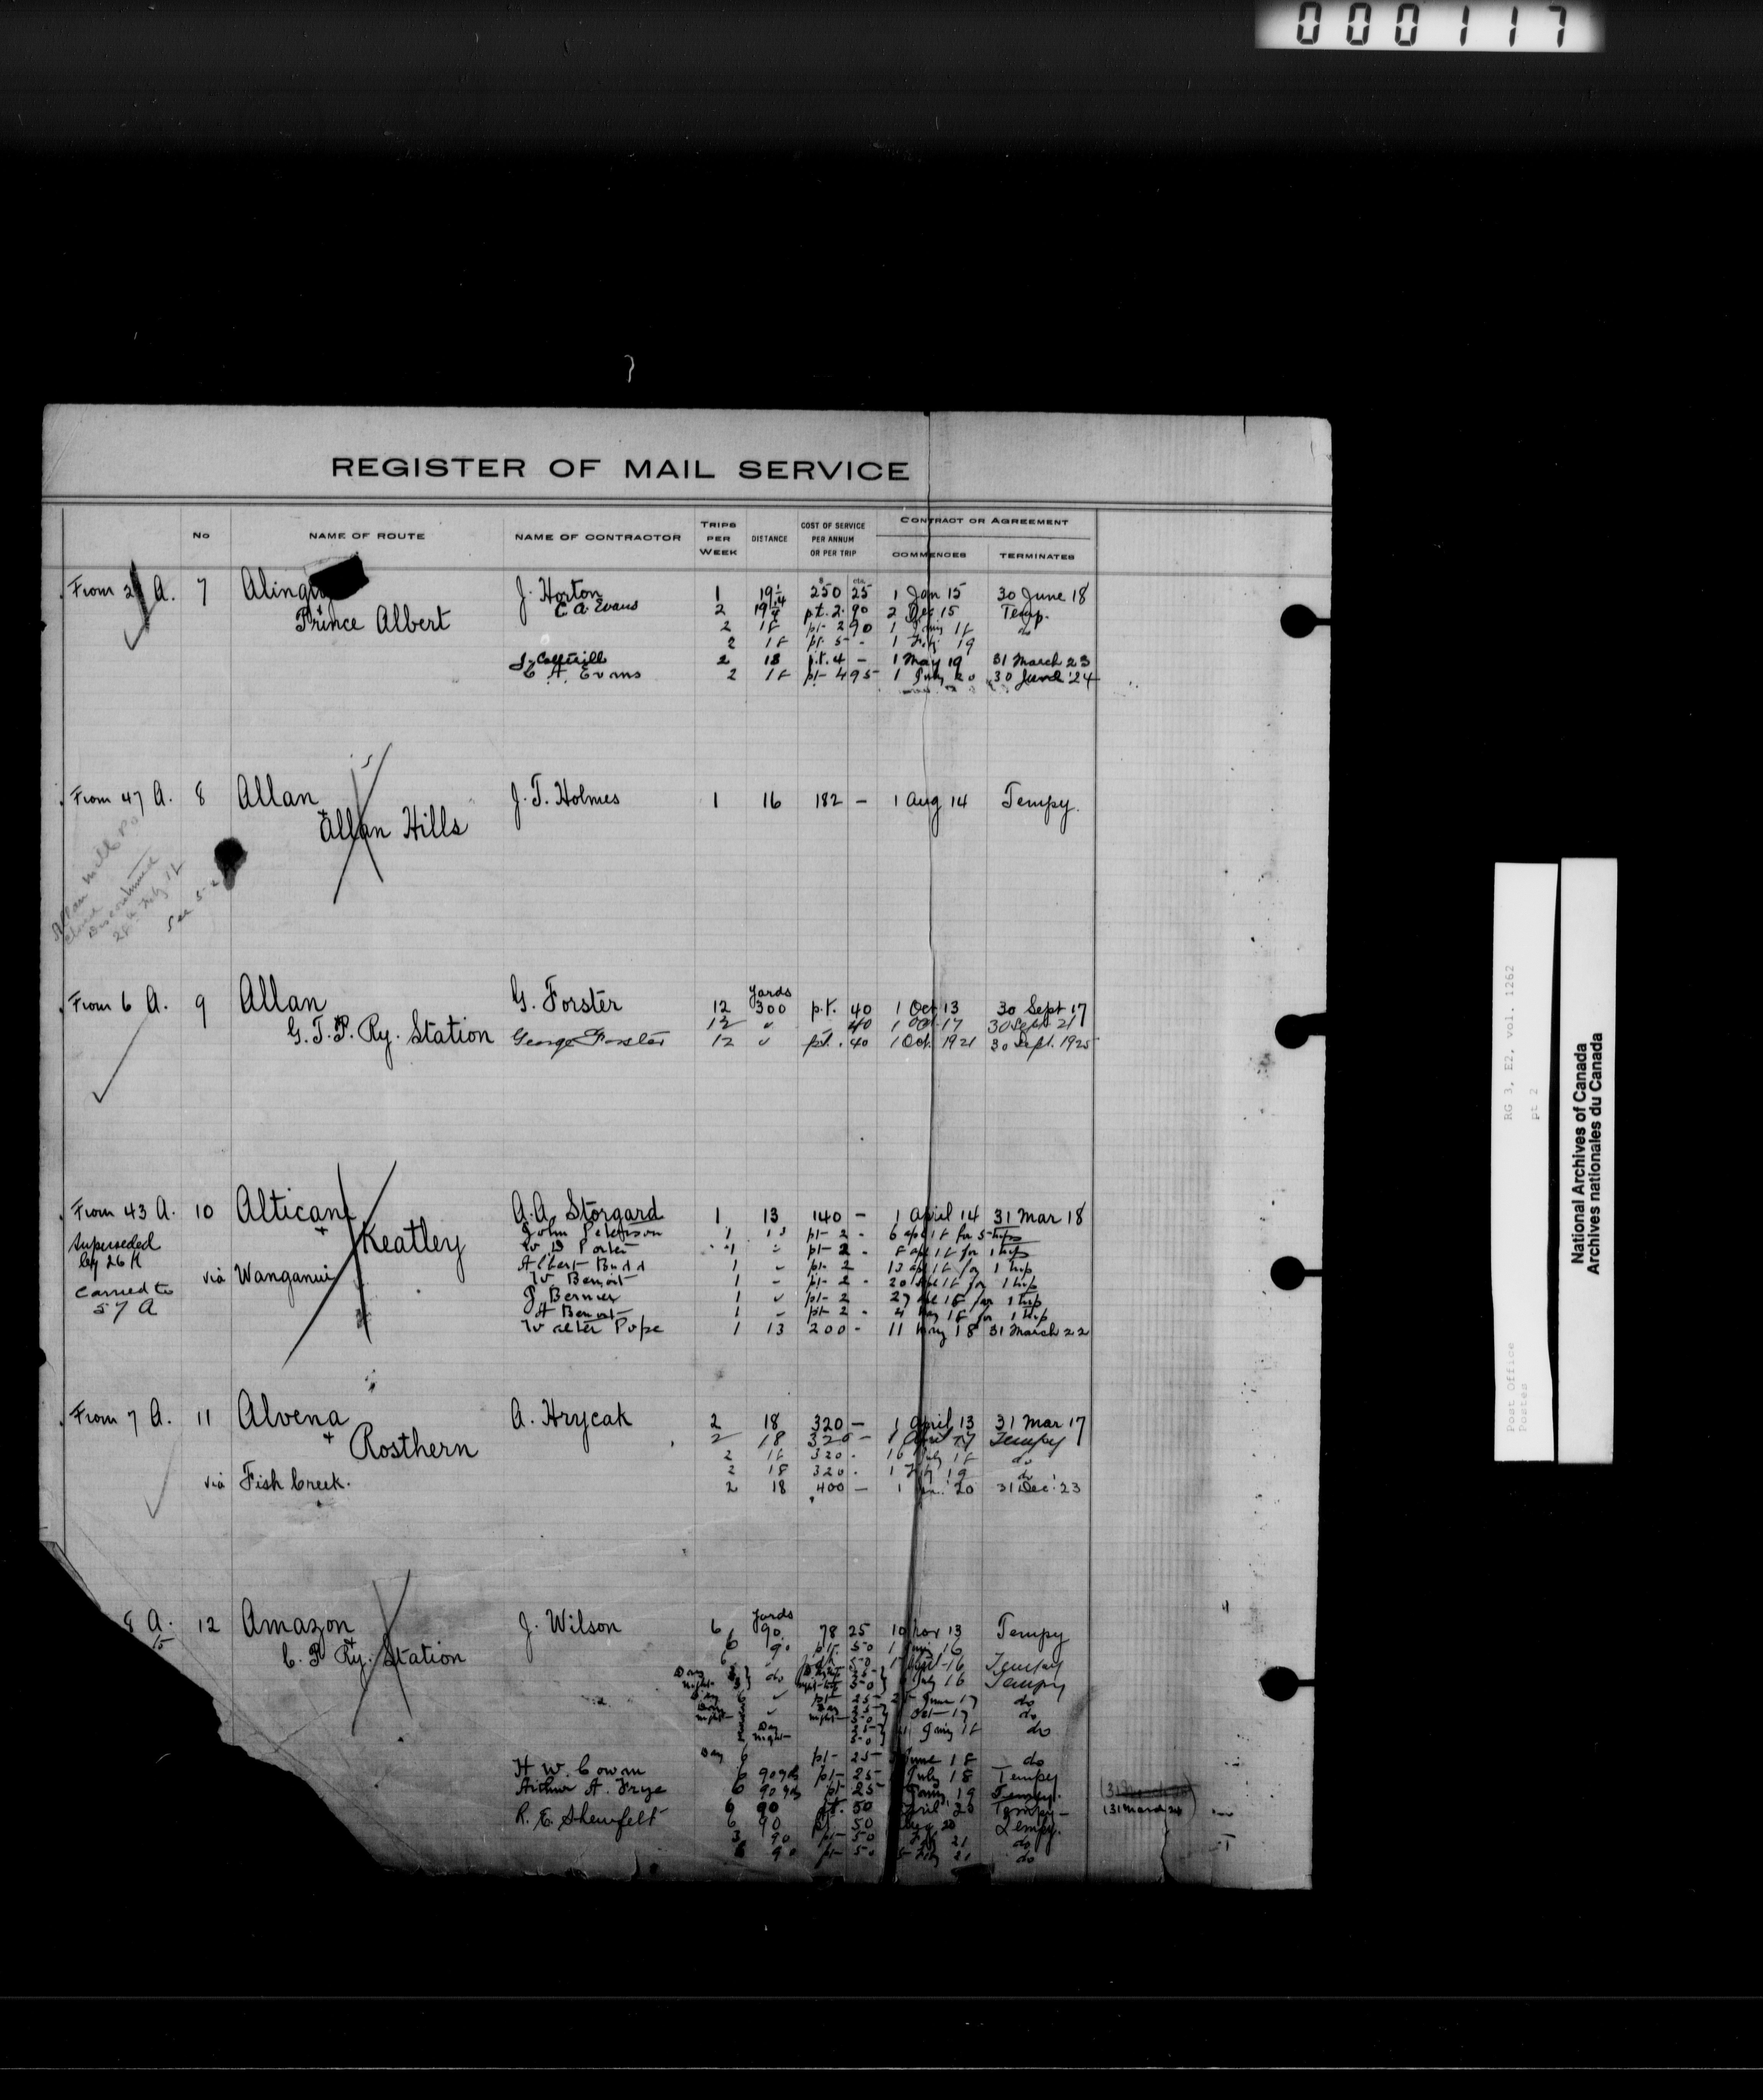 000117
REGISTER OF MAIL SERVICE
No NAME OF ROUTE NAME OF CONTRACTOR TRIPS PER WEEK DISTANCE COST OF SERVICE PER ANNUM OR PER TRIP CONTRACT OR AGREEMENT
COMMENCES TERMINATES
$ cts.
From A. 7 J. Horton 1 19 1/4 250 25 1 Jan 15 30 June 18
E A Evans 2 19 1/4 pt. 2. 90 2 Dec 15 Temp.
Prince Albert 2 18 pt- 2 90 1 18 do
2 18 pt. 5 - 1 19
J. Cottrill 2 18 p.t. 4 - 1 May 19 31 March 23
E. A. Evans 2 18 pt- 4 95 1 July 20 30 June '24
From 47 A. 8 Allan J. T. Holmes 1 16 182 - 1 Aug 14 Tempy.
+ Allan Hills
Discontinued
From 6 A. 9 Allan G. Forster 12 yards 300 p.t. 40 1 Oct 13 30 Sept 17
12 " 40 1 Oct 17 30 Sept 21
G.T.P. Ry. Station George Forster 12 " pt. 40 1 Oct. 1921 30 Sept. 1925
From 43 A. 10 Altican A.A. Storgard 1 13 140 - 1 April 14 31 Mar 18
+ Keatley John Peterson 1 13 pt- 2 - 6 apl 18 for 5 trips
Superseded W. D Porter 1 " pt- 2 - 8 apl 18 for 1 trip
by 26 A Albert Budd 1 " pt- 2 13 apl 18 for 1 trip
via Wanganui W. Benoit 1 - pt- 2 - 20 apl 18 for 1 trip
Carried to J. Bernier 1 " pt- 2 27 apl 18 for 1 trip
57 A A Benoit 1 - pt- 2 - 4 May 18 for 1 trip
Walter Pope 1 13 200 - 11 May 18 31 March 22
From 7 A. 11 Alvena A. Hrycak 2 18 320 - 1 April 13 31 Mar 17
+ Rosthern 2 18 320 - 1 April 17 Tempy
2 18 320 - 16 July 18 do
via Fish Creek. 2 18 320 - 1 19 do
2 18 400 - 1 20 31 Dec. 23
8 A. 12 Amazon J. Wilson 6 yards 90 78 25 10 Nov 13 Tempy
+ C. P. Ry. Station 6 90 pt- 50 1 16
6 50 April 16 Tempy
Day Night 3 do 25 50 July 16 Tempy
Day 6 " pt- 25 June 17 do
Day Night " Day Night 25 50 Oct 17 do
Day Night 25 50 18 do
Day 6 pt- 25 June 18 do
H W. Cowan 6 90 yds pt- 25 July 18 Tempy
Arthur A. Frye 6 90 yds pt- 25 19 Tempy.
6 90 pt. 50 April 20 Tempy - (31 March 24)
R. E. Shewfelt 6 90 pt 50 Aug 20 Tempy.
3 90 pt- 50 21 do
6 90 pt- 50 21 do
RG 3, E2, vol. 1262
pt 2
Post Office
Postes
National Archives of Canada
Archives nationales du Canada